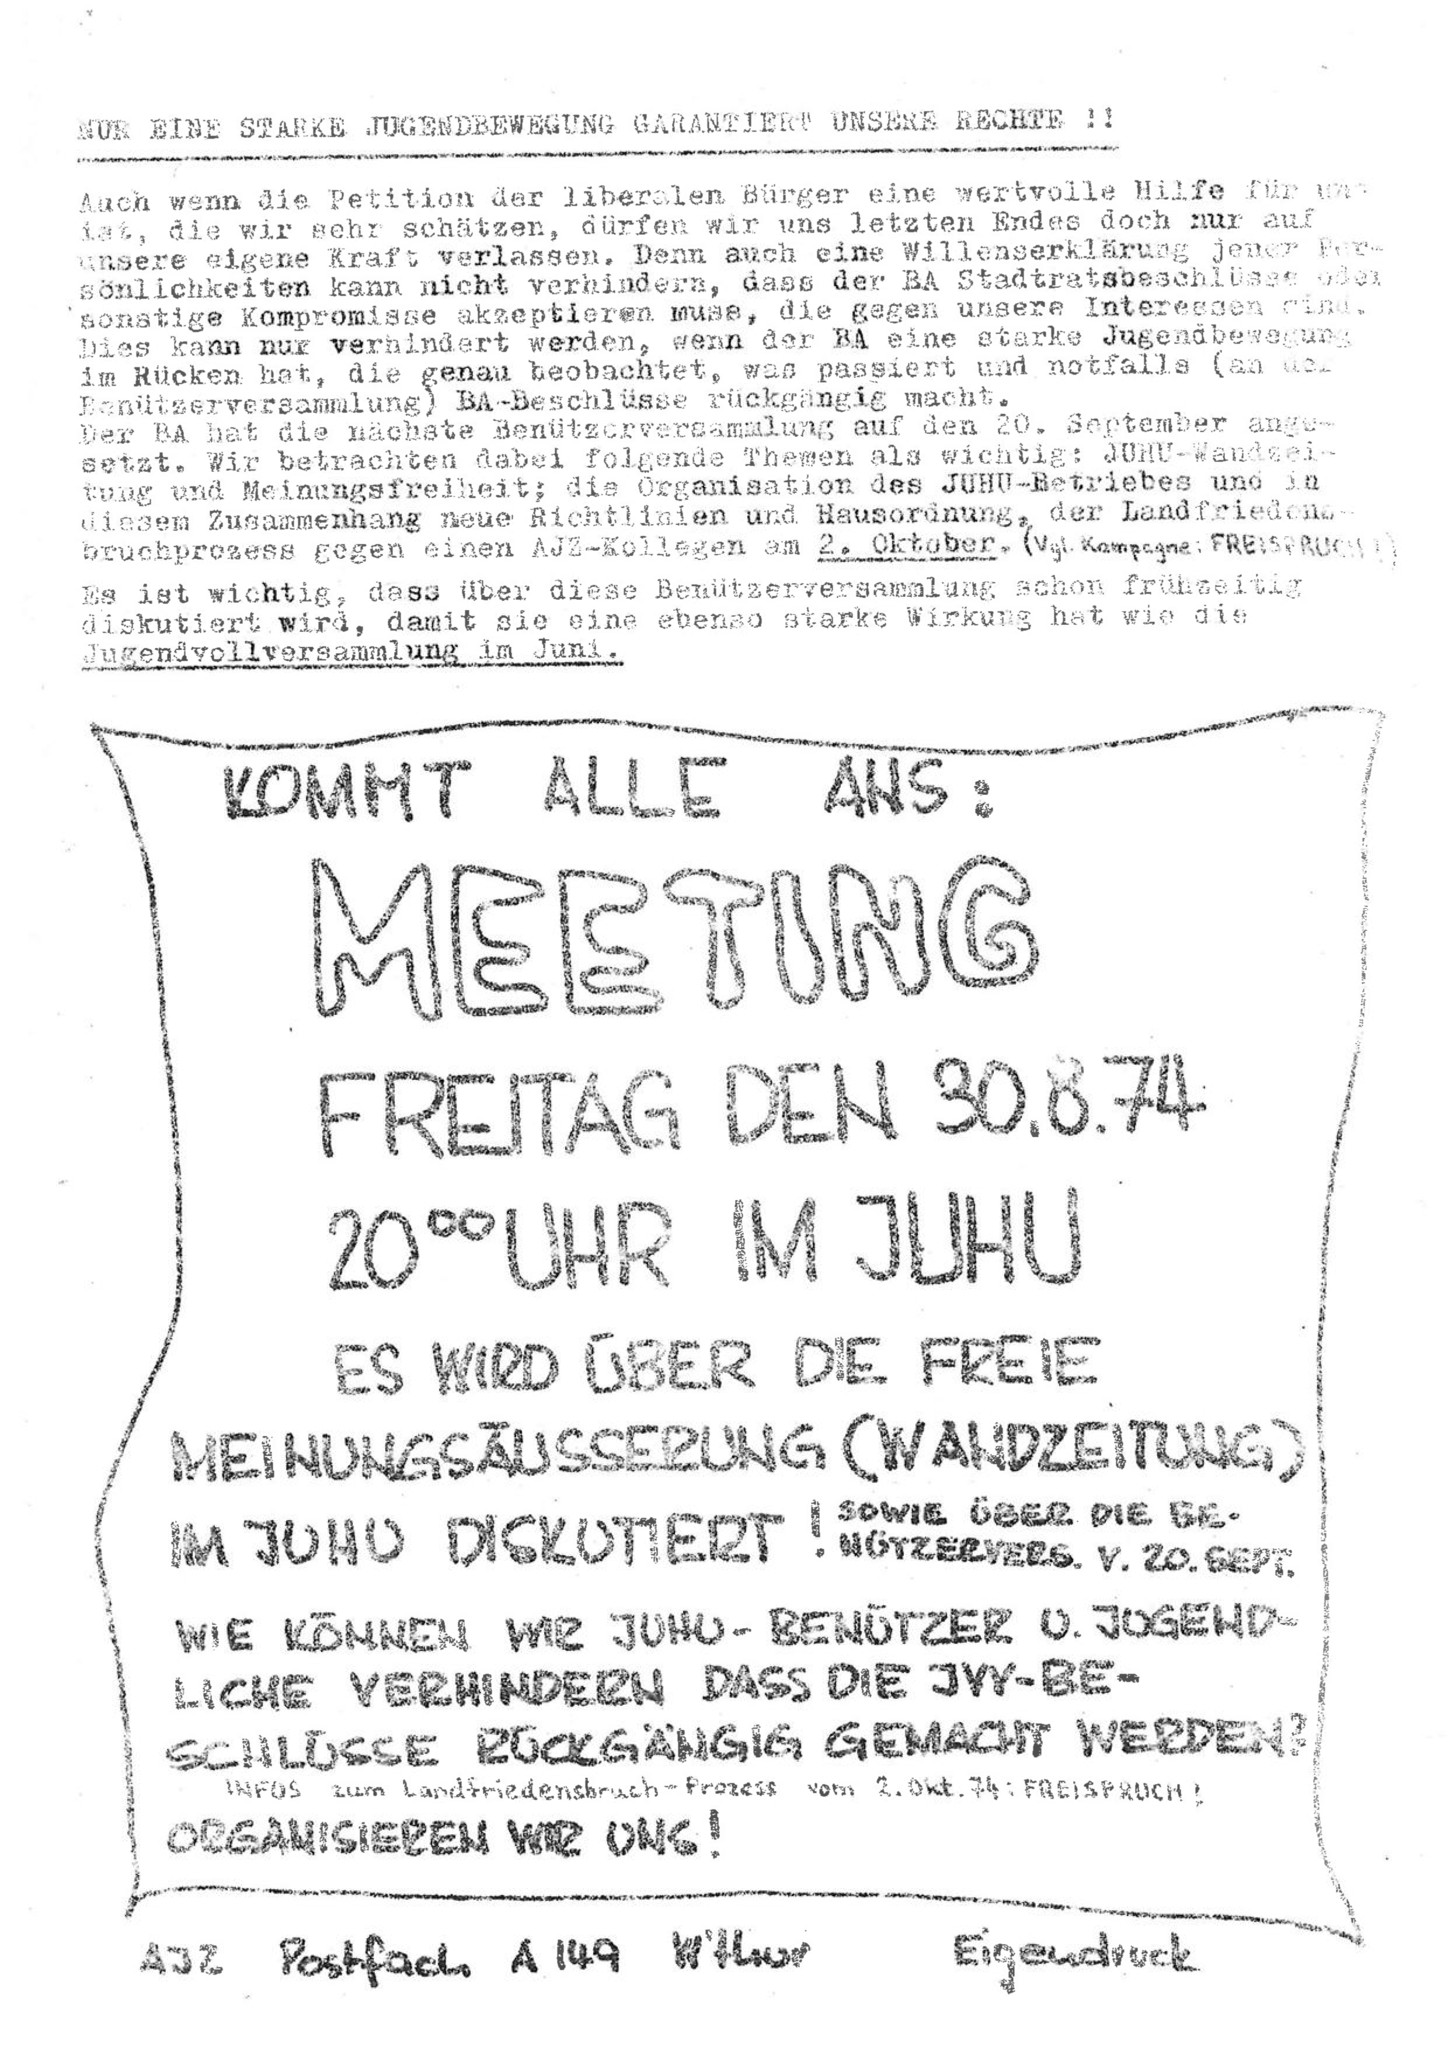 NUR EINE STARKE JUGENDBEWEGUNG GARANTIERT UNSERE RECHTE !!
Auch wenn die Petition der liberalen Bürger eine wertvolle Hilfe für uns
ist, die wir sehr schätzen, dürfen wir uns letzten Endes doch nur auf
unsere eigene Kraft verlassen. Denn auch eine Willenserklärung jener Per-
sönlichkeiten kann nicht verhindern, dass der BA Stadtratsbeschlüsse oder
sonstige Kompromisse akzeptieren muss, die gegen unsere Interessen sind.
Dies kann nur verhindert werden, wenn der BA eine starke Jugendbewegung
im Rücken hat, die genau beobachtet, was passiert und notfalls (an der
Benützerversammlung) BA-Beschlüsse rückgängig macht.
Der BA hat die nächste Benützerversammlung auf den 20. September ange-
setzt. Wir betrachten dabei folgende Themen als wichtig: JUHU-Wandzei-
tung und Meinungsfreiheit; die Organisation des JUHU-Betriebes und in
diesem Zusammenhang neue Richtlinien und Hausordnung, der Landfriedens-
bruchprozess gegen einen AJZ-Kollegen am 2. Oktober. (Vgl. Kampagne: FREISPRUCH!)
Es ist wichtig, dass über diese Benützerversammlung schon frühzeitig
diskutiert wird, damit sie eine ebenso starke Wirkung hat wie die
Jugendvollversammlung im Juni.
KOMMT ALLE ANS:
MEETING
FREITAG DEN 30.8.74
20⁰⁰ UHR IM JUHU
ES WIRD ÜBER DIE FREIE
MEINUNGSÄUSSERUNG (WANDZEITUNG)
IM JUHU DISKUTIERT! SOWIE ÜBER DIE BE-
NÜTZERVERS. V. 20. SEPT.
WIE KÖNNEN WIR JUHU-BENÜTZER U. JUGEND-
LICHE VERHINDERN DASS DIE JVV-BE-
SCHLÜSSE RÜCKGÄNGIG GEMACHT WERDEN?
INFOS zum Landfriedensbruch-Prozess vom 2. Okt. 74: FREISPRUCH!
ORGANISIEREN WIR UNS!
AJZ Postfach A 149 W'thur Eigendruck